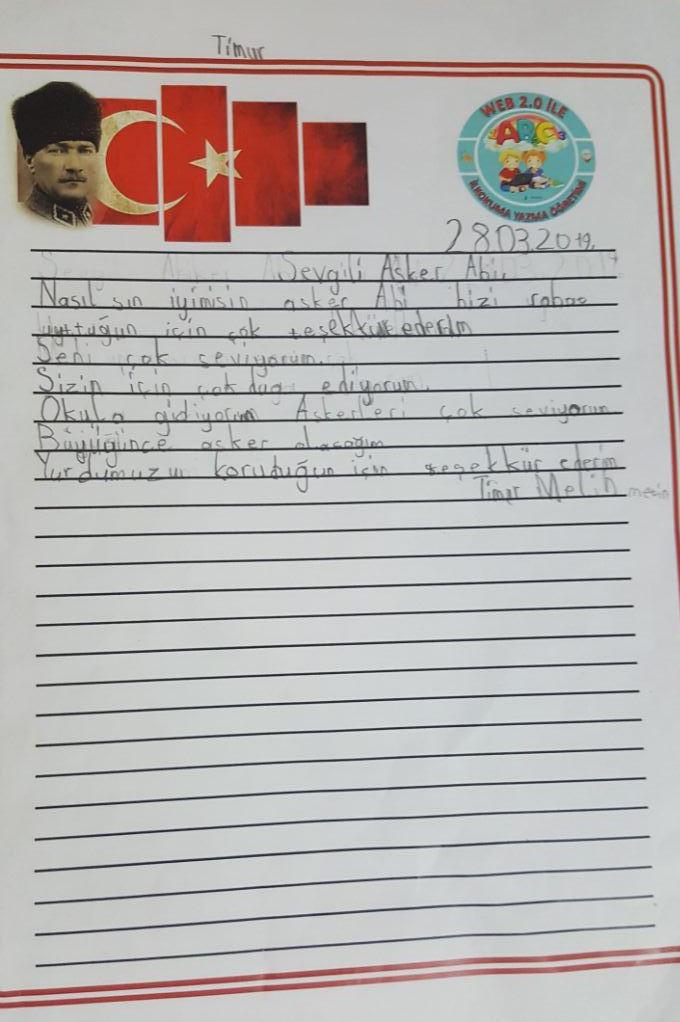 Timur
WEB 2.0 İLE
ABC
İLKOKUMA YAZMA ÖĞRETİMİ
28.03.2019.
Sevgili Asker Abi,
Nasıl sın iyimisin asker Abi bizi rahat
uyttuğun için çok teşekkür ederim
Seni çok seviyorum.
Sizin için çok dua ediyorum.
Okula gidiyorum Askerleri çok seviyorum
Büyüğünce asker olacağım
Yurdumuzu koruduğun için teşekkür ederim
Timur Melih metin